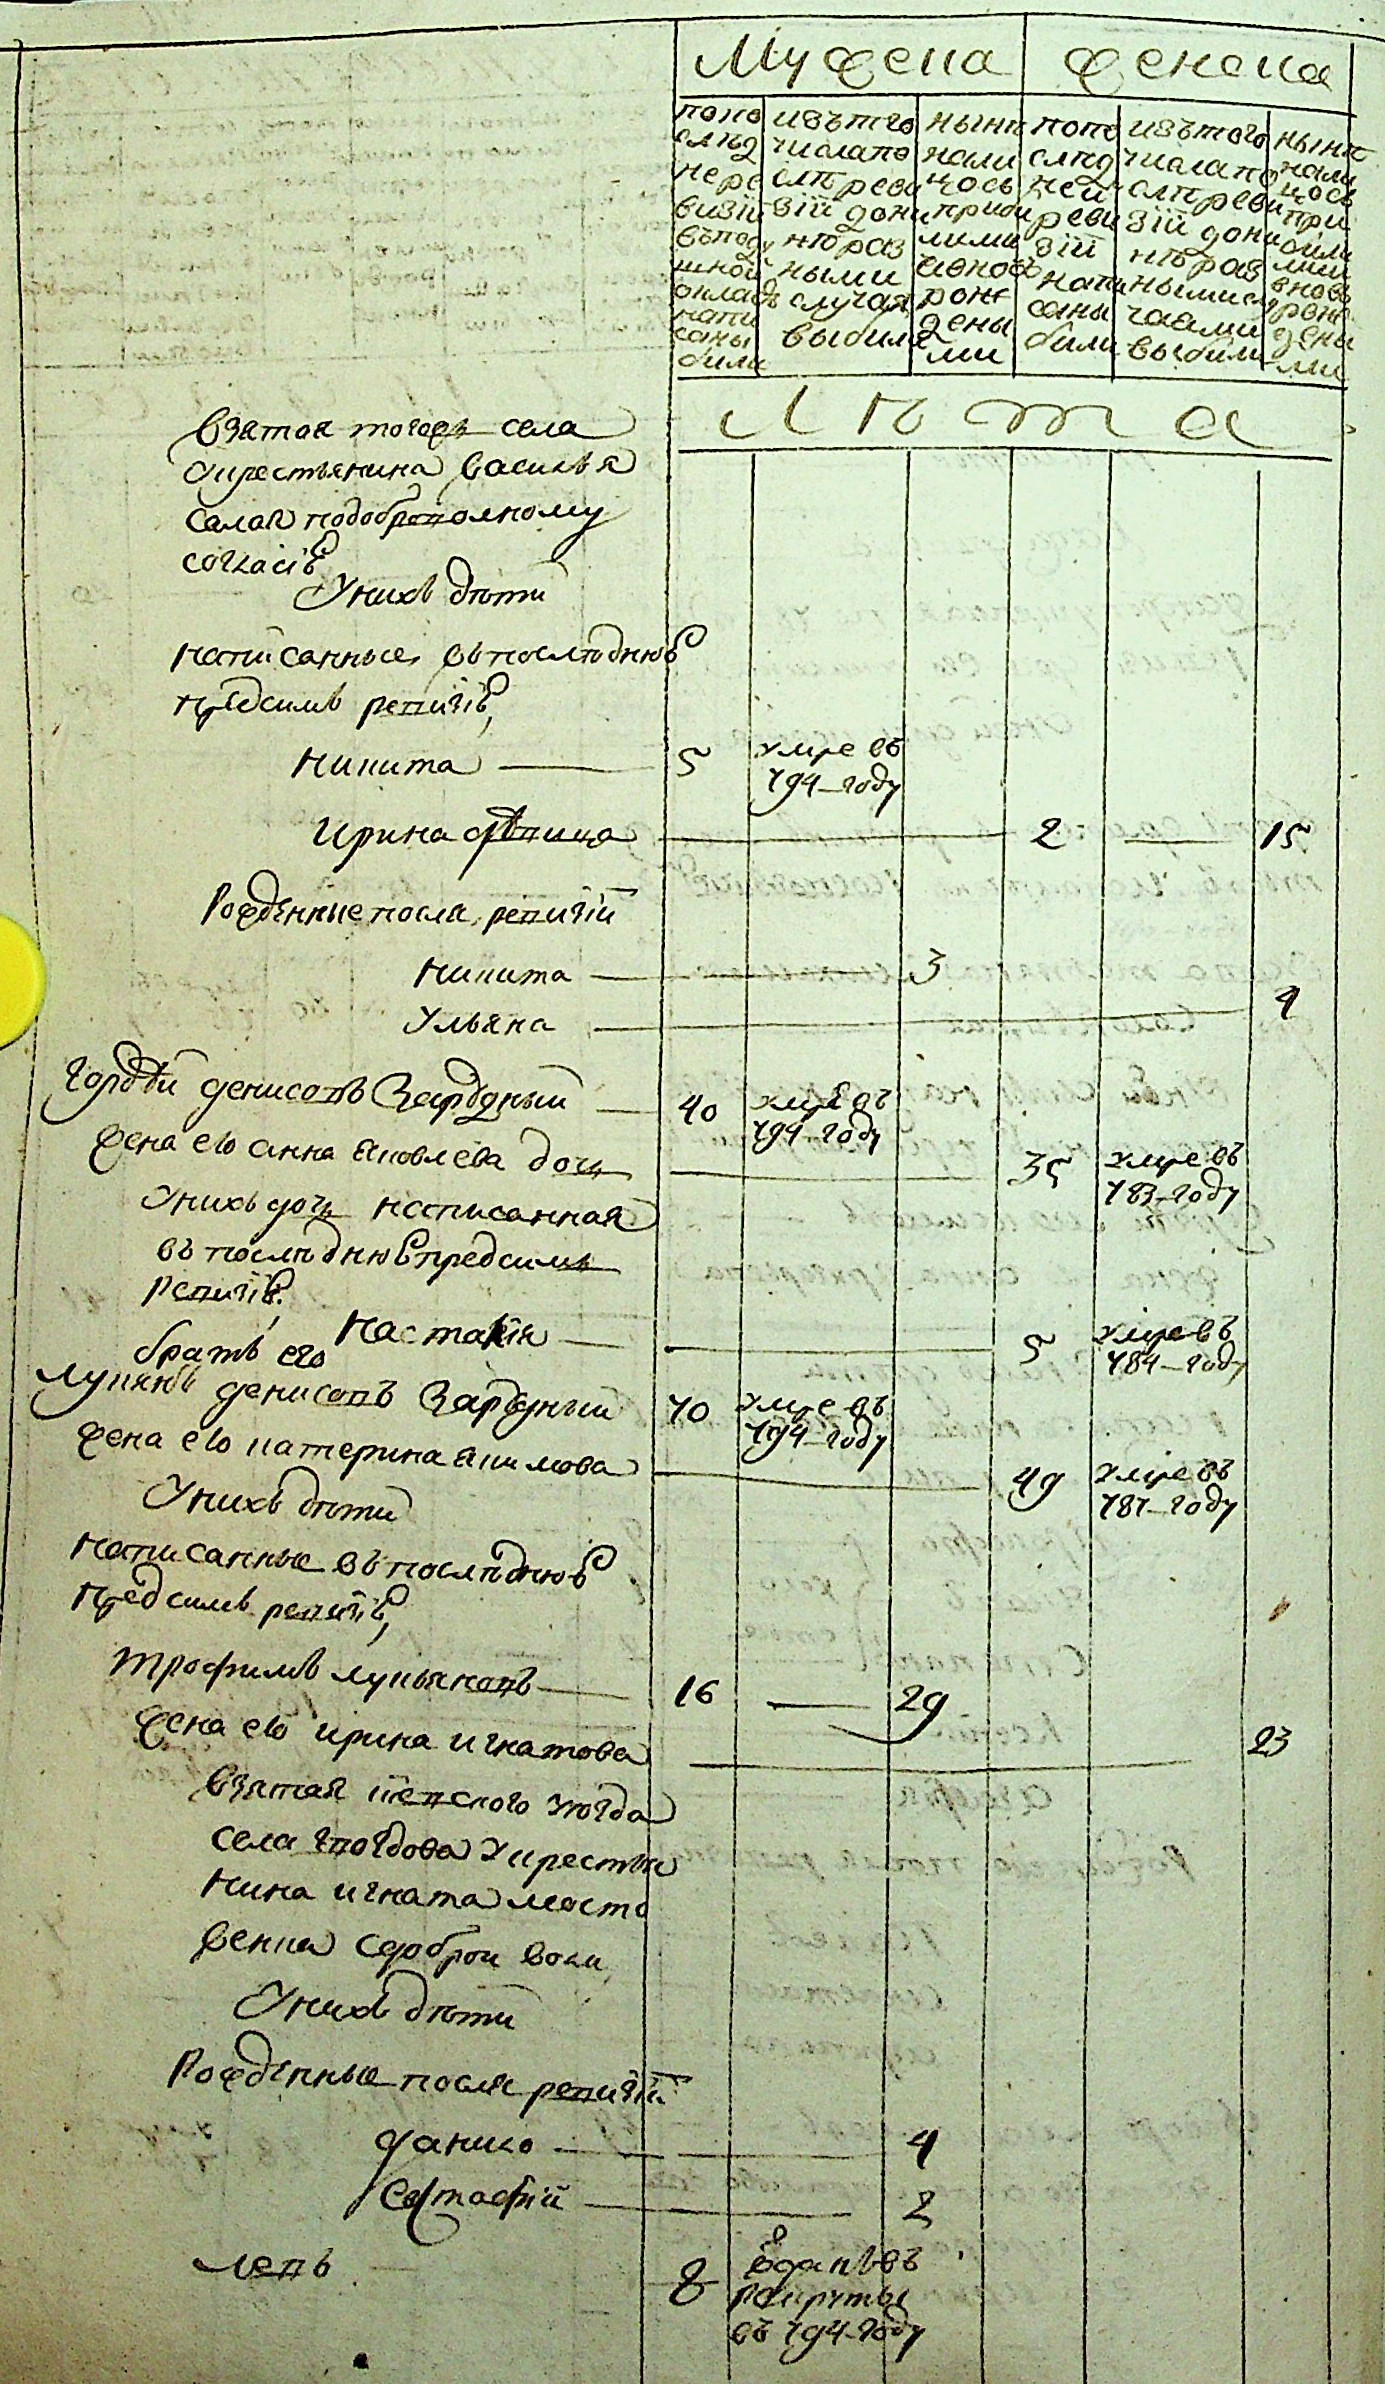 Мужеска женска
попо
слѣд
не ре
визіи
въподу
шной
окладъ
напи
саны
были
изътого
числапо
слѣ реви
зіи дони
нѣ раз
ными
случая
выбили
нынѣ
нали
цось
приби
лими
ивновъ
рож
дены
ми
попо
слѣд
ней
реви
зіи
напи
саны
были
изътого
числапо
слѣ реви
зіи дони
нѣ раз
нымислу
чаями
выбили
нынѣ
нали
цось
при
били
мии
вновь
рож
дены
ми
Лѣта
взятая тогожъ села
укрестьянина василья
салая подоброполному
согласію
Унихъ дѣти
написанные въпослѣднюю
предсимъ ревизію
никита 5 умре въ
794 году
Ирина дѣвица 2 15
Рожденные посла ревизіи
никита 3
Ульяна 4
Гордѣй денисовъ Зарудный 40 умре въ
794 году
жена ею анна яковлева дочь 35 умре въ
783 году
Унихъ дочь написанная
въ послѣднюю предсимъ
ревизію
Настасія 5 умре въ
784 году
братъ его
лукянъ денисовъ Зарудный 70 умре въ
794 году
жена ею катерина якимова 49 умре въ
787 году
Унихъ дѣти
написанные въ послѣднюю
предсимъ ревизію
трофимъ лукьяновъ 16 29
жена ею ирина игнатова 23
взятая
села укрестья
нина игната мосто
венка здоброи воли
Унихъ дѣти
Рожденные после ревизіи
данило 4
Евстафіи 2
левъ 8 Отданъ въ
рекруты
въ 794 году